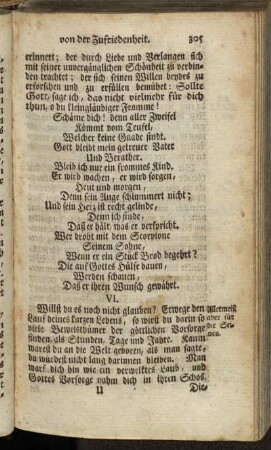 von der Zufriedenheit. 305
erinnert; der durch Liebe und Verlangen sich
mit seiner unvergänglichen Schönheit zu verbin-
den trachtet; der sich seinen Willen beydes zu
erforschen und zu erfüllen bemühet: Sollte
Gott, sage ich, das nicht vielmehr für dich
thun, o du kleingläubiger Fromme!
Schäme dich! denn aller Zweifel
Kömmt vom Teufel,
Welcher keine Gnade findt.
Gott bleibt mein getreuer Vater
Und Berather.
Bleib ich nur ein frommes Kind.
Er wird wachen, er wird sorgen,
Heut und morgen,
Denn sein Auge schlummert nicht;
Und sein Herz ist recht gelinde,
Denn ich finde,
Daß er hält, was er verspricht.
Wer droht mit dem Scorpione
Seinem Sohne,
Wenn er ein Stück Brod begehrt?
Die auf Gottes Hülfe bauen,
Werden schauen,
Daß er ihren Wunsch gewährt.
VI.
Willst du es noch nicht glauben? Erwege den
Lauf deines kurzen Lebens, so wirst du darin so
viele Beweisthümer der göttlichen Vorsorge
finden, als Stunden, Tage und Jahre. Kaum
warest du an die Welt geboren, als man sagte,
du würdest nicht lang darinnen bleiben. Man
warf dich hin wie ein verwelktes Laub, und
Gottes Vorsorge nahm dich in ihren Schos.
Allermeist
aber für
die Sei-
nen.
U Die